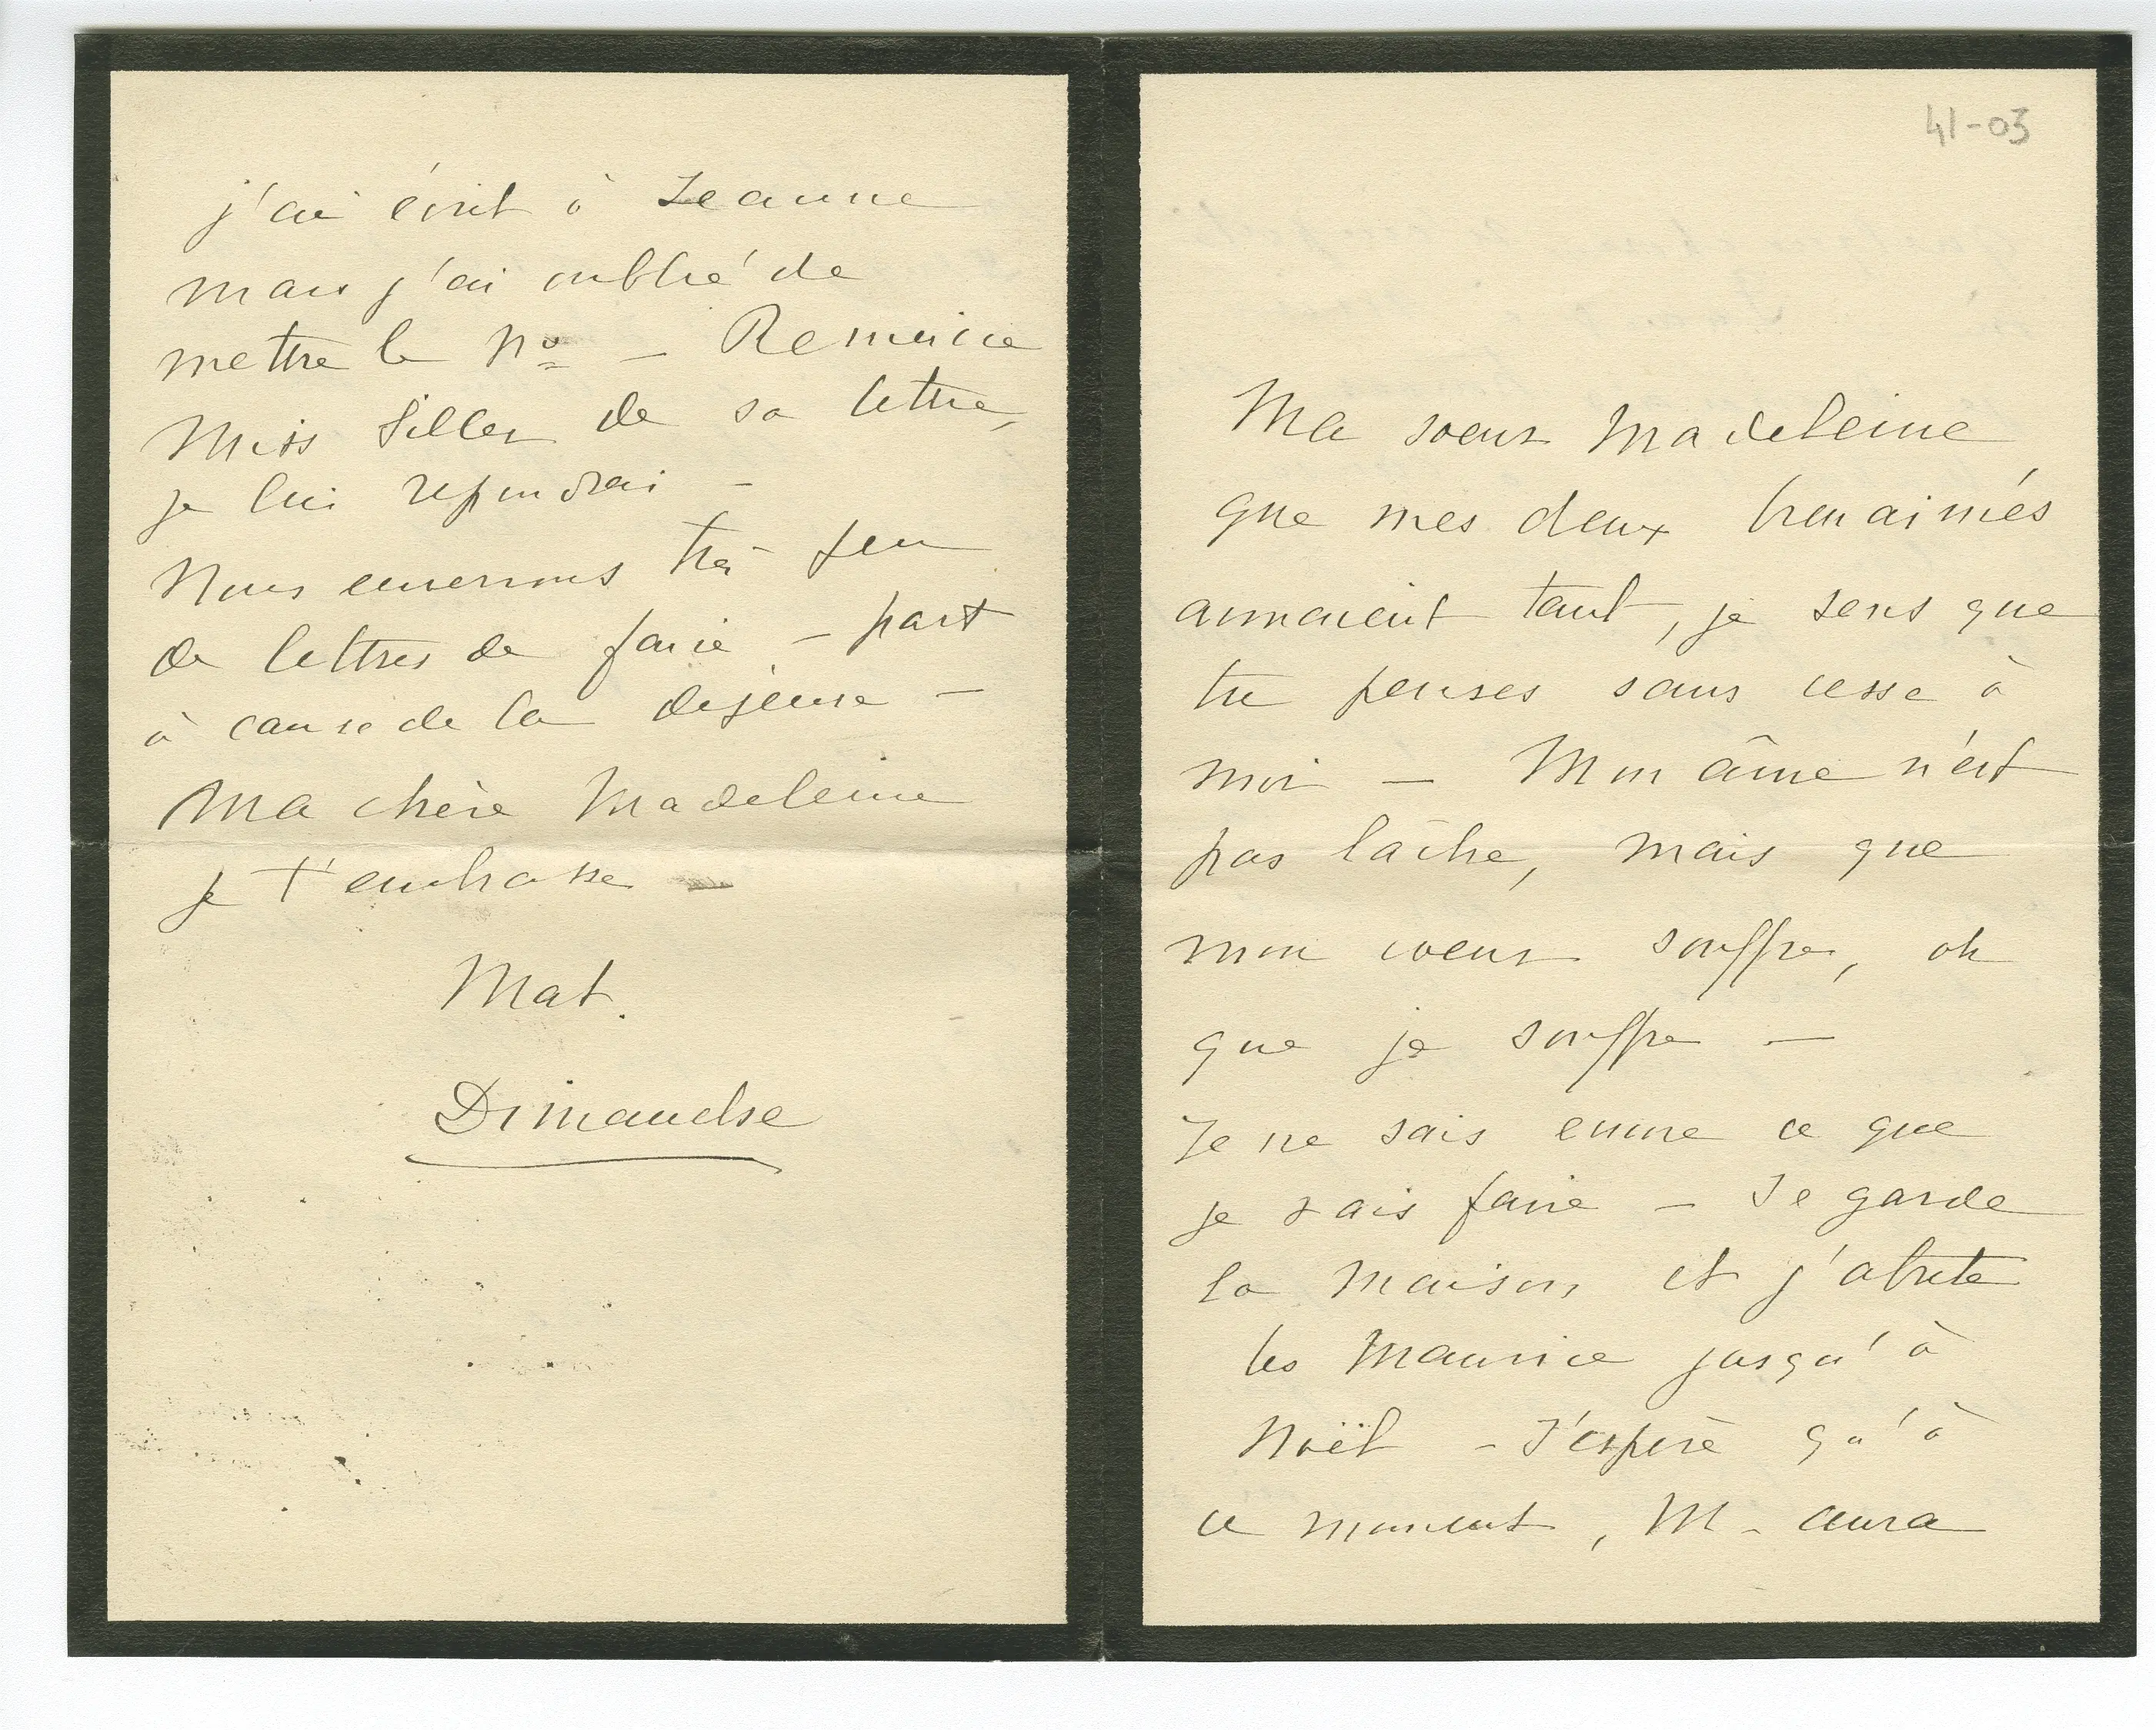 j'ai écrit à Jeanne
mais j'ai oublié de
mettre le Nº – Remercie
Miss Siller de sa lettre,
je lui répondrai –
Nous enverrons très peu
de lettres de faire – part
à cause de la dépense –
Ma chère Madeleine
je t'embrasse –
Mat.
Dimanche
41-03
Ma soeur Madeleine
que mes deux bien aimés
aimaient tant, je sens que
tu penses sans cesse à
moi – Mon âme n'est
pas lâche, mais que
mon coeur souffre, oh
que je souffre –
Je ne sais encore ce que
je vais faire – Je garde
la maison, et j'abrite
les Maurice jusqu'à
Noël – J'espère qu'à
ce moment, M. aura